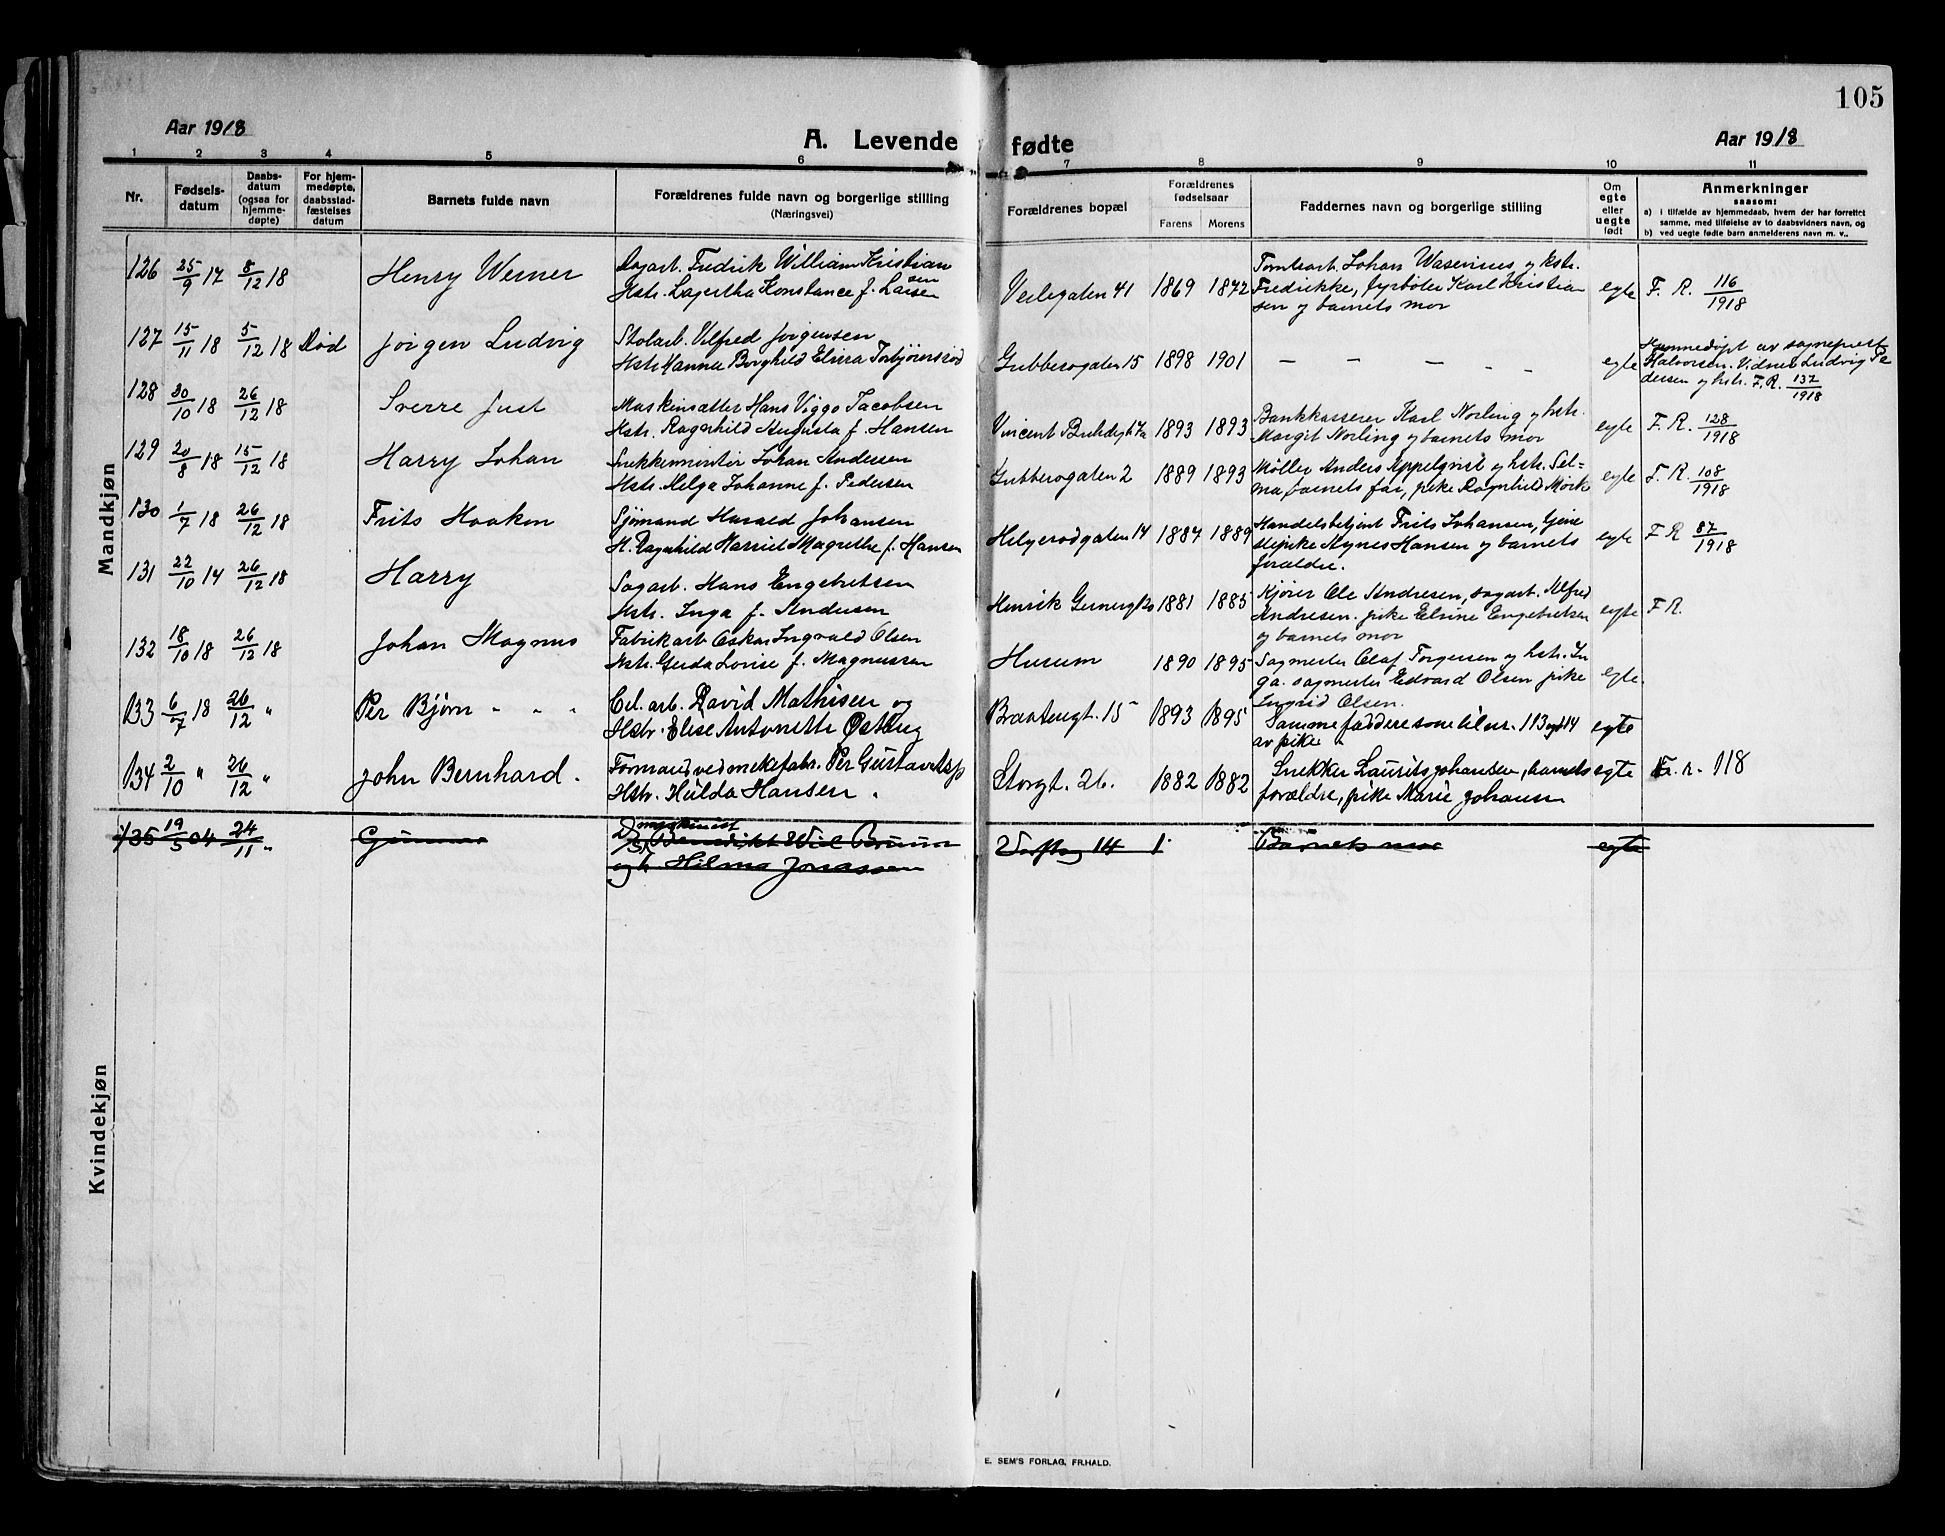 105
Aar 1918
A. Levende fødte
Aar 1918
1 2 3 4 5 6 7 8 9 10 11
Nr.
Fødsels-
datum
Daabs-
datum
(ogsaa for
hjemme-
døpte)
For hjem-
medøpte,
daabsstad-
fæstelses
datum
Barnets fulde navn
Forældrenes fulde navn og borgerlige stilling
(Næringsvei)
Forældrenes bopæl
Forældrenes
fødselsaar
Farens Morens
Faddernes navn og borgerlige stilling
Om
egte
eller
uegte
født
Anmerkninger
saasom:
a) i tilfælde av hjemmedaab, hvem der har forrettet
samme, med tilføielse av to daabsvidners navn, og
b) ved uegte fødte barn anmelderens navn m. v..
Mandkjøn
126 25/9 17 8/12 18 Henry Werner
Dagarb. Fredrik William Kristian
sen
Hstr. Lagertha Konstance f. Larsen
Veilegaten 41 1869 1872
Tomtearb. Johan Wasenius og hstr.
Fredrikke, fyrbøter Karl Kristian
sen og barnets mor
egte F. R. 116/1918
127 15/11 18 5/12 18 Død Jørgen Ludvig
Stolarb. Vilfred Jørgensen
Hstr. Hanna Borghild Elvira Torbjørnsrød
Gubberogaten 15 1898 1901 – – – –
egte
Hjemmedøpt av sogneprest
Halvorsen. Vidner Ludvig Pe
dersen og hstr. F. R. 137/1918
128 30/10 18 26/12 18 Sverre Just
Maskinsætter Hans Viggo Jacobsen
Hstr. Ragnhild Augusta f. Hansen
Vincent 1893 1893
Bankkasserer Karl Norling og hstr.
Margit Norling og barnets mor
egte F. R. 128/1918
129 20/8 18 15/12 18 Harry Johan
Snekkermester Johan Andersen
Hstr. Helga Johanne f. Pedersen
Gubberogaten 2 1889 1893
Møller Anders Appelqvist og hstr. Sel-
ma, barnets far, pike Ragnhild Mørk
egte F. R. 108/1918
130 1/7 18 26/12 18 Frits Haakon
Sjømand Harald Johansen
H. Ragnhild Harriet Magrethe f. Hansen
Helgerødgaten 14 1887 1889
Handelsbetjent Frits Johansen, tjene
stepike Agnes Hansen og barnets
forældre.
egte F R 87/1918
131 22/10 14 26/12 18 Harry
Sagarb. Hans Engebretsen
Hstr. Inga f. Andersen
Henrik Gernersgt 20 1881 1885
Kjører Ole Andresen, sagarb. Alfred
Andresen. pike Elvine Engebretsen
og barnets mor
egte F R.
132 18/10 18 26/12 18 Johan Magnus
Fabrikarb Oskar Ingvald Olsen
Hstr. Gerda Lovise f. Magnussen
Husum 1890 1895
Sagmester Olaf Torgersen og hstr. In
ga. sagmester Edvard Olsen pike
Ingrid Olsen.
egte.
133 6/7 18 26/12 " Per Bjørn - - -
Cel. arb. David Mathisen og
Hstr. Elise Antonette Østbeg
Braatengt. 15 1893 1895
Samme faddere som til nr. 113 og 114
av pike
egte
134 2/10 " 26/12 " John Bernhard.
Formand ved mekefabr. Per Gustav
Hstr. Hulda Hansen.
Storgt. 26. 1882 1882
Snekker Laurits Johansen, barnets
forældre, pike Marie Johansen
egte F. r. 118
135 19/5 04 24/11 " Gunnar
maskinist
Benedikt Bruun
og h. Hilma Jonassen
14 1
Barnets mor
egte
Kvindekjøn
E. SEM'S FORLAG, FR.HALD.